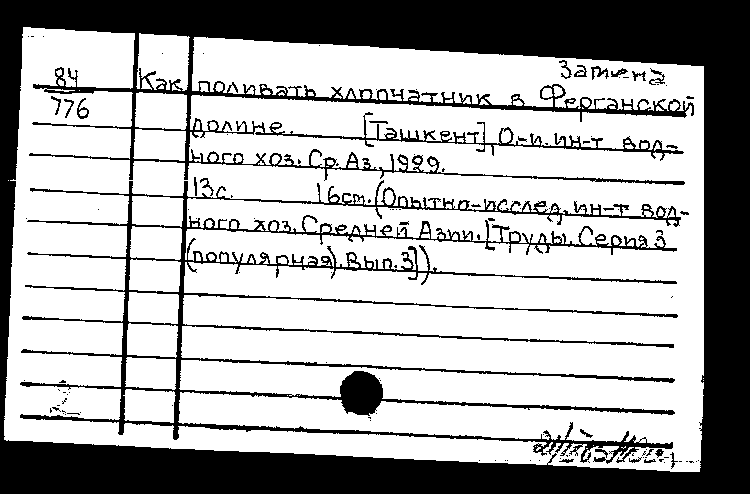 Замена
84
776
Как поливать хлопчатник в Ферганской
долине. [Ташкент], О.-и. ин-т вод-
ного хоз. Ср. Аз., 1929.
13с. 16см. (Опытно-исслед. ин-т вод-
ного хоз. Средней Азии. [Труды. Серия 3
(популярная). Вып. 3]).
2